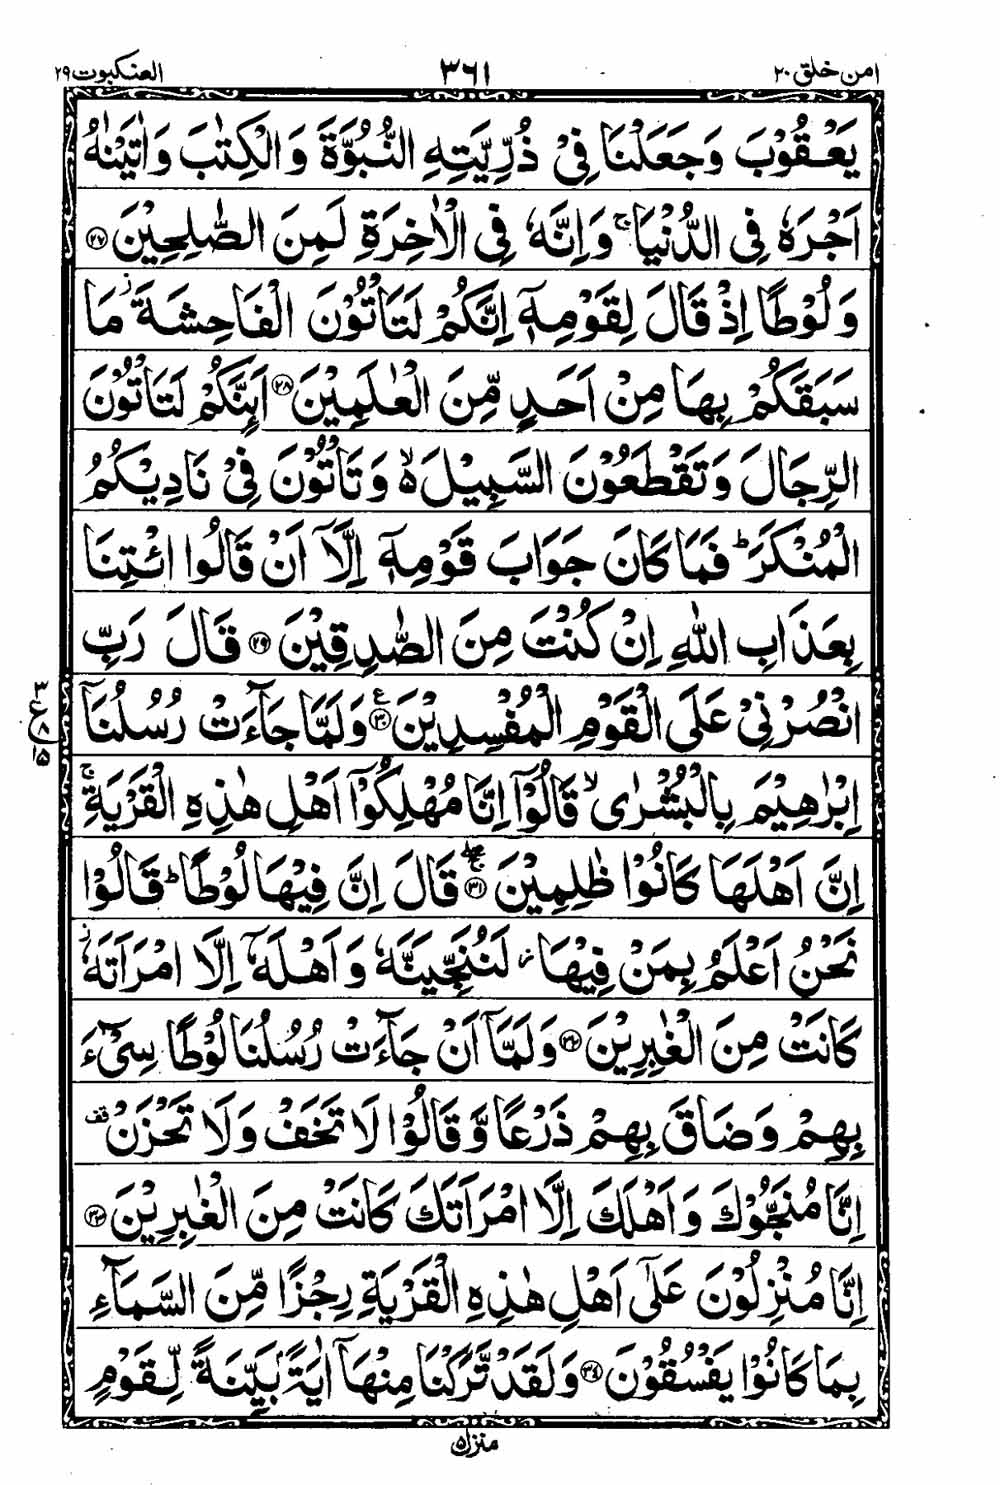 امن خلق ۲۰ ۳۶۱ العنكبوت ۲۹
يَعْقُوْبَ وَجَعَلْنَا فِيْ ذُرِّيَّتِهِ النُّبُوَّةَ وَالْكِتٰبَ وَاٰتَيْنٰهُ
اَجْرَهٗ فِي الدُّنْيَا ۚ وَاِنَّهٗ فِي الْاٰخِرَةِ لَمِنَ الصّٰلِحِيْنَ ۲۷
وَلُوْطًا اِذْ قَالَ لِقَوْمِهٖٓ اِنَّكُمْ لَتَاْتُوْنَ الْفَاحِشَةَ ۡ مَا
سَبَقَكُمْ بِهَا مِنْ اَحَدٍ مِّنَ الْعٰلَمِيْنَ ۲۸ اَئِنَّكُمْ لَتَاْتُوْنَ
الرِّجَالَ وَتَقْطَعُوْنَ السَّبِيْلَ ۵ۙ وَتَاْتُوْنَ فِيْ نَادِيْكُمُ
الْمُنْكَرَ ؕ فَمَا كَانَ جَوَابَ قَوْمِهٖٓ اِلَّآ اَنْ قَالُوا ائْتِنَا
بِعَذَابِ اللّٰهِ اِنْ كُنْتَ مِنَ الصّٰدِقِيْنَ ۲۹ قَالَ رَبِّ
انْصُرْنِيْ عَلَى الْقَوْمِ الْمُفْسِدِيْنَ ۳۰ ع وَلَمَّا جَآءَتْ رُسُلُنَآ
۳ ع ۸ ۱۵
اِبْرٰهِيْمَ بِالْبُشْرٰى ۙ قَالُوْٓا اِنَّا مُهْلِكُوْٓا اَهْلِ هٰذِهِ الْقَرْيَةِ ۚ
اِنَّ اَهْلَهَا كَانُوْا ظٰلِمِيْنَ ۳۱ قَالَ اِنَّ فِيْهَا لُوْطًا ؕ قَالُوْا
نَحْنُ اَعْلَمُ بِمَنْ فِيْهَا لَنُنَجِّيَنَّهٗ وَاَهْلَهٗٓ اِلَّا امْرَاَتَهٗ ز
كَانَتْ مِنَ الْغٰبِرِيْنَ ۳۲ وَلَمَّآ اَنْ جَآءَتْ رُسُلُنَا لُوْطًا سِيْٓءَ
بِهِمْ وَضَاقَ بِهِمْ ذَرْعًا وَّقَالُوْا لَا تَخَفْ وَلَا تَحْزَنْ قف
اِنَّا مُنَجُّوْكَ وَاَهْلَكَ اِلَّا امْرَاَتَكَ كَانَتْ مِنَ الْغٰبِرِيْنَ ۳۳
اِنَّا مُنْزِلُوْنَ عَلٰٓى اَهْلِ هٰذِهِ الْقَرْيَةِ رِجْزًا مِّنَ السَّمَآءِ
بِمَا كَانُوْا يَفْسُقُوْنَ ۳۴ وَلَقَدْ تَّرَكْنَا مِنْهَآ اٰيَةًۢ بَيِّنَةً لِّقَوْمٍ
منزل ۵